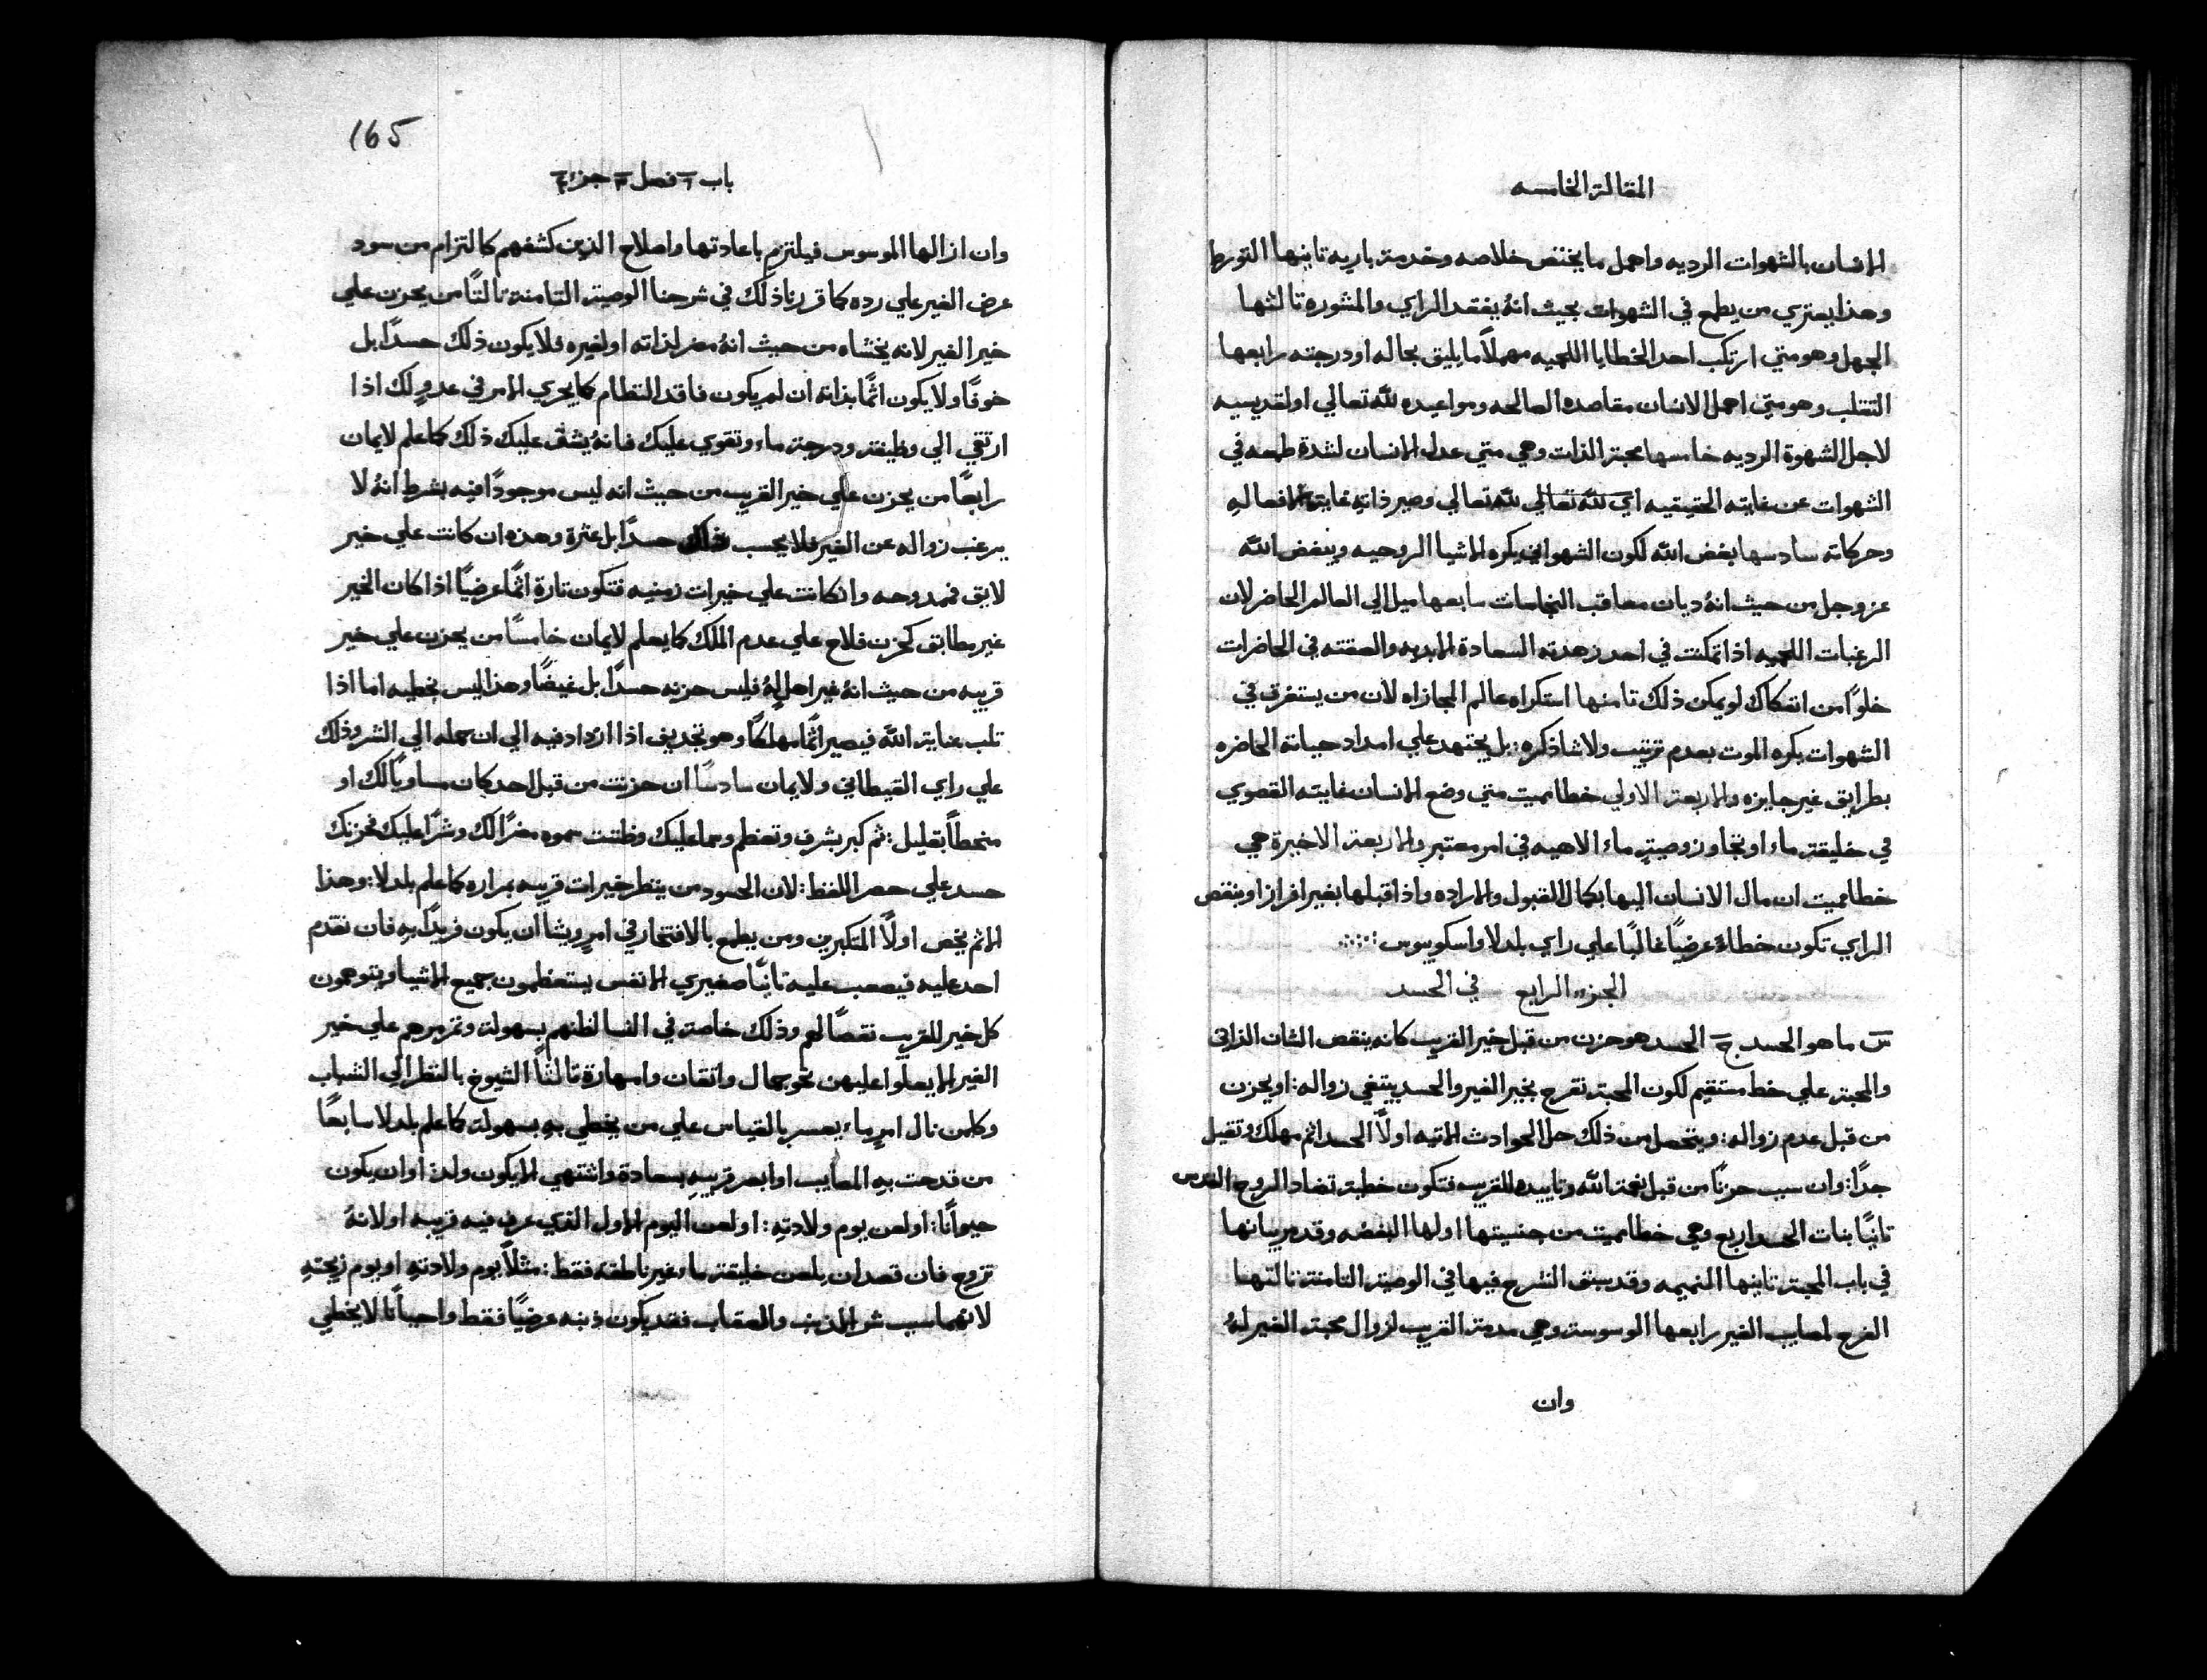 المقالة الخامسه
الانسان بالشهوات الرديه واهمل ما يختص خلاصه وخدمة باريه ثانيها التورط
وهذا يعتري من يطمع في الشهوات بحيث انهُ يفقد الراي والمشوره ثالثها
الجهل وهو متي ارتكب احد الخطايا اللحميه مهملاً ما يليق بحاله او درجته رابعها
التقلب وهو متي اهمل الانسان مقاصده الصالحه ومواعيده لله تعالي او لقديسيه
لاجل الشهوة الرديه خامسها محبة الذات وهي متي عدل الانسان لشدة طمعه في
الشهوات عن غايته الحقيقيه اي لله تعالي لله تعالي وصير ذاته غاية لافعاله
وحركاته سادسها بغض الله لكون الشهواني يكره الاشيا الروحيه ويبغض الله
عز وجل من حيث انهُ ديان معاقب النجاسات سابعها ميل الي العالم الحاضر لان
الرغبات اللحميه اذا تمكنت في احد زهدته السعادة الابديه والصقته في الحاضرات
خلوًا من انفكاك لو يمكن ذلك ثامنها استكراه عالم المجازاه لان من يستغرق في
الشهوات يكره الموت بعدم ترتيب ولا شا ذكره: بل يجتهد علي امداد حياته الحاضره
بطرايق غير جايزه والاربعة الاولي خطا مميت متي وضع الانسان غايته القصوي
في خليقة ماء او تجاوز وصيةٍ ماء الاهيه في امر معتبر والاربعة الاخيرة هي
خطا مميت ان مال الانسان اليها بكمال القبول والاراده واذا قبلها بغير افراز او بنقص
الراي تكون خطاءً عرضيًا غالبًا علي راي بلدلا واسكوبوس
الجزء الرابع في الحسد
س ما هو الحسد ج الحسد هو حزن من قبل خير القريب كانه ينقص الشان الذاتي
والمحبة علي خط مستقيم لكون المحبة تفرح بخير الغير والحسد يبتغي زواله: او يحزن
من قبل عدم زواله: ويتحصل من ذلك حل الحوادث الاتيه اولاً الحسد اثم مهلك وثقيل
جدًا: وان سبب حزنًا من قبل نعمة الله وتاييده للقريب فتكون خطية تضاد الروح القدس
ثانيًا بنات الحسد اربع وهي خطا مميت من جنسيتها اولها البغضه وقد مر بيانها
في باب المحبة ثانيها النميمه وقد سبق الشرح فيها في الوصية الثامنة ثالثها
الفرح لمصايب الغير رابعها الوسوسة وهي مذمة القريب لزوال محبة الغير لهُ
وان
165
باب ٦ فصل ٣ جزء ٤
وان ازالها الموسوس فيلتزم باعادتها واصلاح الذين كشفهم كالتزام من سود
عرض الغير علي رده كما قررنا ذلك في شرحنا الوصية الثامنة ثالثًا من يحزن علي
خير الغير لانه يخشاه من حيث انهُ مضر لذاته او لغيره فلا يكون ذلك حسدًا بل
خوفًا ولا يكون اثمًا بذاته ان لم يكون فاقد النظام كما يجري الامر في عدوٍ لك اذا
ارتقي الي وظيفة ودرجة ماء وتقوي عليك فانهُ يشق عليك ذلك كما علم لايمان
رابعًا من يحزن علي خير القريب من حيث انه ليس موجودًا فيه بشرط انهُ لا
يرغب زواله عن الغير فلا يحسب ذلك حسدًا بل غيرة وهذه ان كانت علي خير
لايق فممدوحه وان كانت علي خيرات زمنيه فتكون تارة اثمًا عرضيًا اذا كان الخير
غير مطابق كحزن فلاح علي عدم الملك كما يعلم لايمان خامسًا من يحزن علي خير
قريبه من حيث انهُ غير اهلٍ لهُ فليس حزنه حسدًا بل غيضًا وهذا ليس بخطيه اما اذا
ثلب عناية الله فيصير اثمًا مهلكًا وهو تجديف اذا ازداد فيه الي ان حمله الي الشر وذلك
علي راي القيطاني ولايمان سادسًا ان حزنت من قبل احد كان مساويًا لك او
منحطاً بقليل: ثم كبر بشرف وتعظم وسما عليك وظننت سموه مضرًا لك وشرًا عليك فحزنك
حسد علي حصر اللفظ: لان الحسود من ينظر خيرات قريبه بمراره كما علم بلدلا: وهذا
الاثم يخص اولاً المتكبرين ومن يطمع بالافتخار في امرٍ ويشا ان يكون فريدًا به فان تقدم
احد عليه فيصعب عليه ثانيًا صغيري الانفس يستعظمون جميع الاشيا ويتوهمون
كل خير للقريب نقصًا لهم وذلك خاصة في النسا لظنهم بسهولة وتمرمرهم علي خير
الغير لالا يعلوا عليهن نحو جمال واتقان وامهارة ثالثًا الشيوخ بالنظر الي الشباب
وكلمن نال امرٍ ماء بعسر بالقياس علي من يحظي به بسهولة كما علم بلدلا سابعًا
من قدحت به المصايب او ابصر قريبهِ بسعادة واشتهي الا يكون ولد: او ان يكون
حيوانًا: او لعن يوم ولادته: او لعن اليوم الاول الذي عرف فيه قريبه او لانهُ
تزوج فان قصد ان يلعن خليقة ماء غير ناطقه فقط: مثلاً يوم ولادتهِ او يوم زيجتهِ
لانهما سبب شر الذنب والعقاب فقد يكون ذنبه عرضيًا فقط واحيانًا لا يخطي